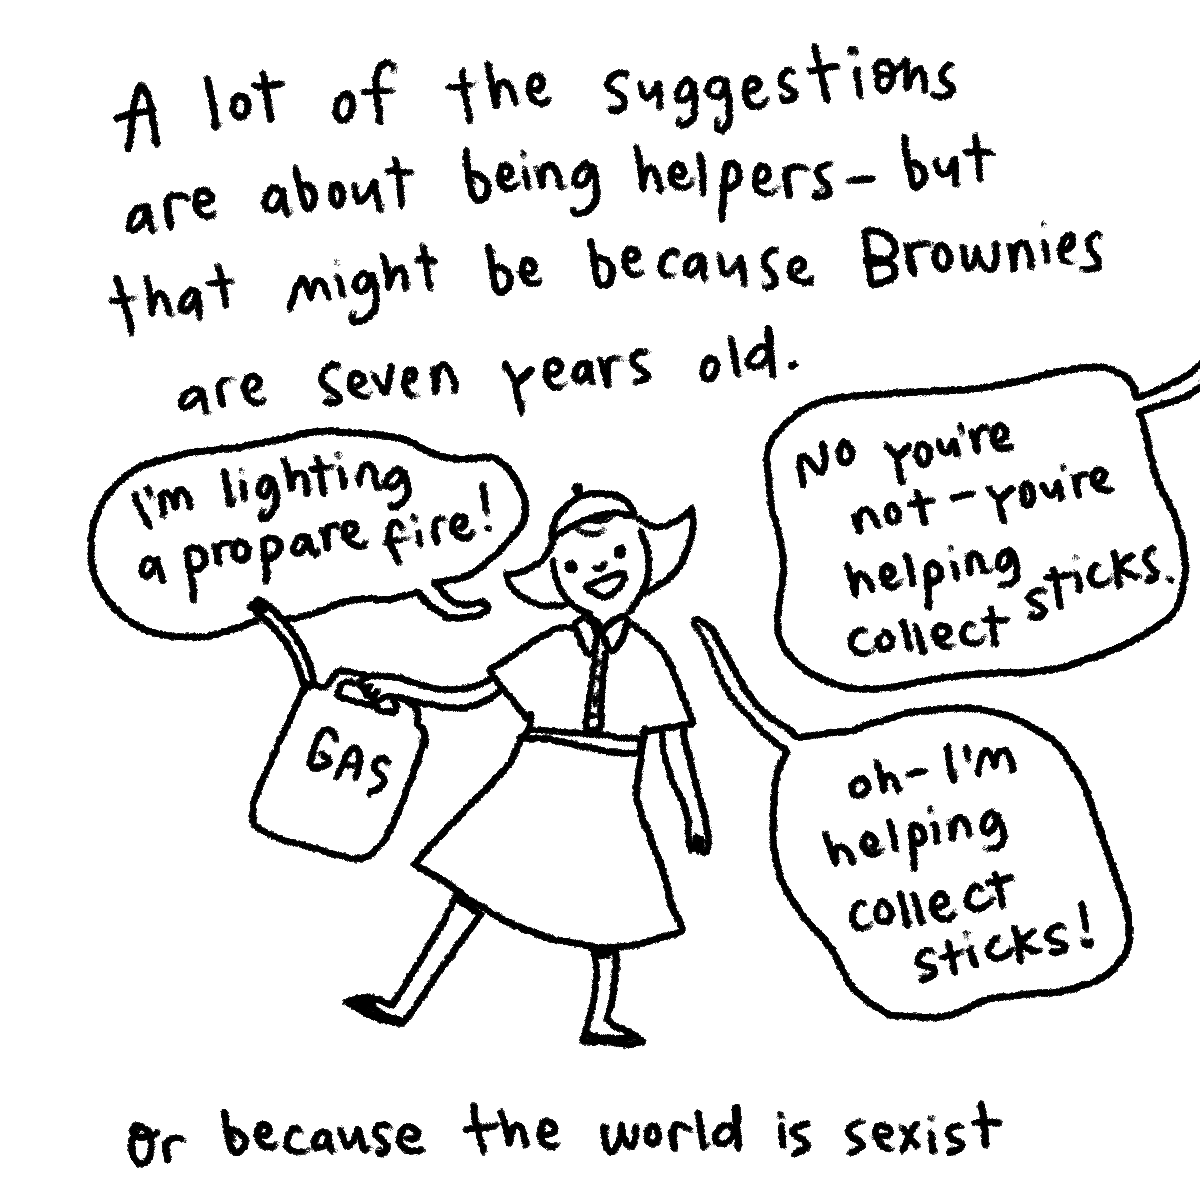 A lot of the suggestions
are about being helpers - but
that might be because Brownies
are seven years old.
I'm lighting
a propare fire!
No you're
not - you're
helping
collect sticks.
GAS
oh - I'm
helping
collect
sticks!
or because the world is sexist